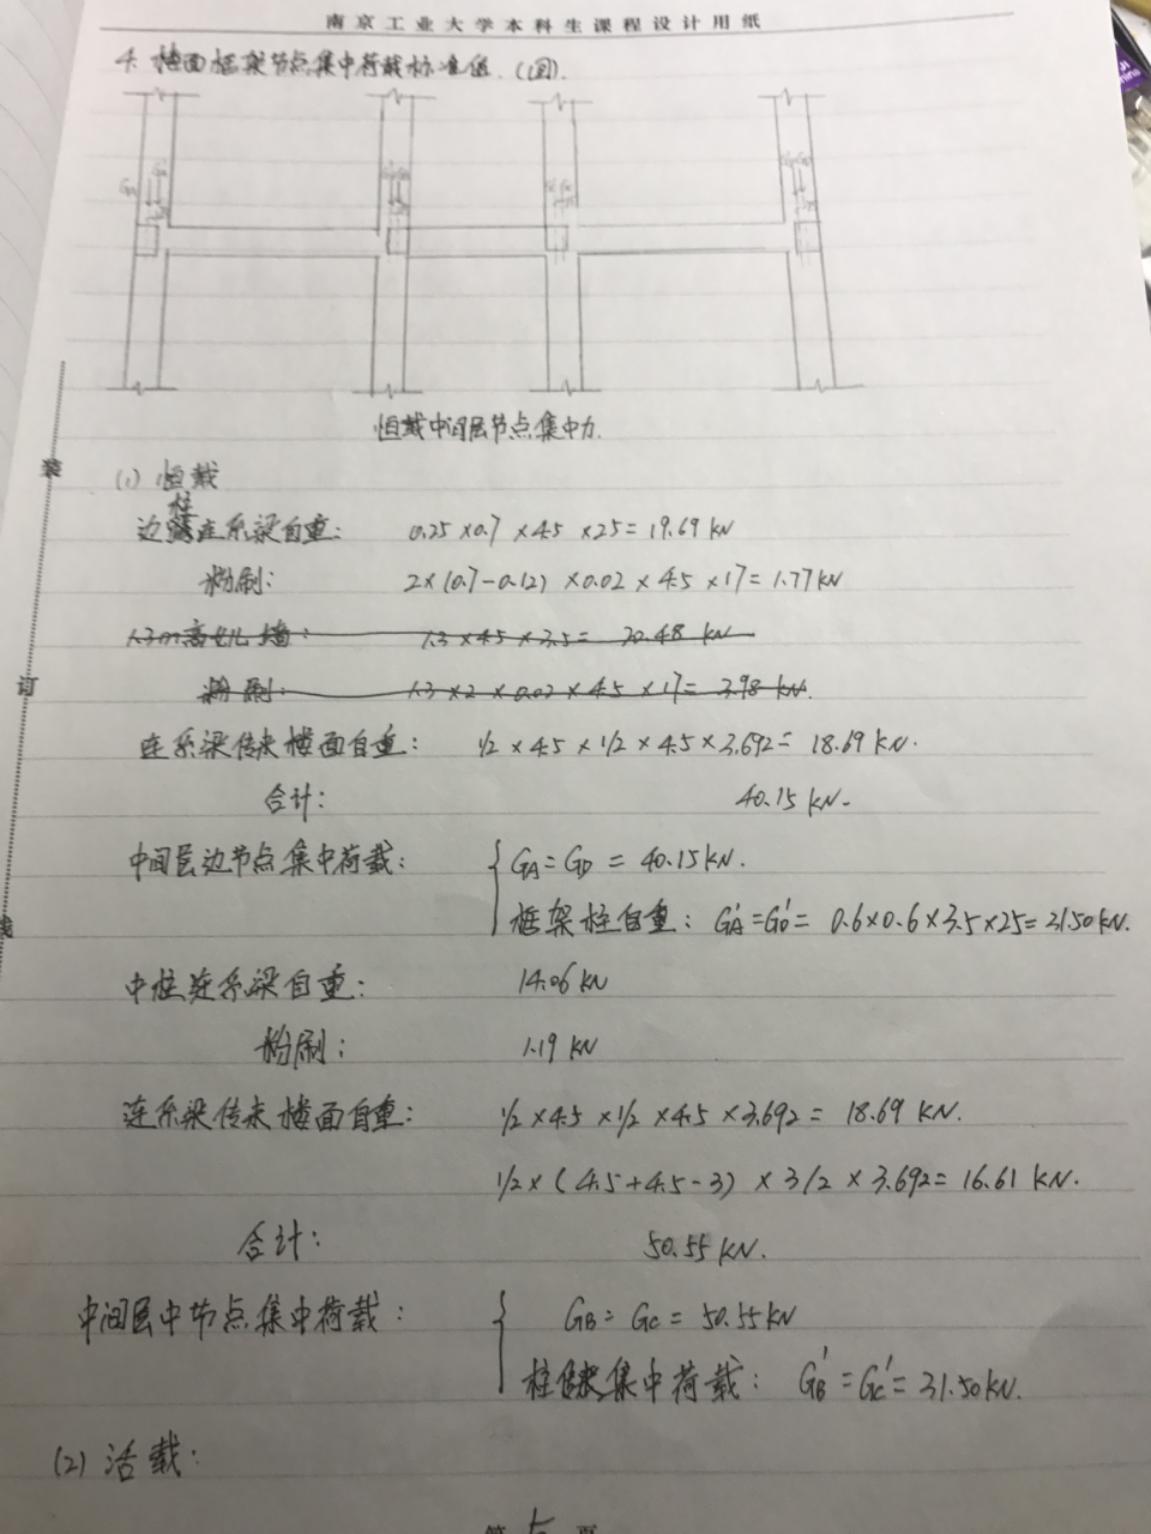 南京工业大学本科生课程设计用纸
4. 楼面框架节点集中荷载标准值.(图).
恒载中间层节点集中力.
(1) 恒载
边柱连系梁自重: 0.25×0.7×4.5×25=19.69 kN
粉刷: 2×(0.7-0.12)×0.02×4.5×17=1.77kN
1.3m高女儿墙: 1.3×4.5×3.5= 20.48 kN
粉刷: 1.3×2×0.02×4.5×17= 3.98 kN.
连系梁传来楼面自重: 1/2×4.5×1/2×4.5×3.692= 18.69 kN.
合计: 40.15 kN.
中间层边节点集中荷载: { GA=GD = 40.15kN.
框架柱自重: GA'=GD'= 0.6×0.6×3.5×25=31.50kN.
中柱连系梁自重: 14.06 kN
粉刷: 1.19 kN
连系梁传来楼面自重: 1/2×4.5×1/2×4.5×3.692= 18.69 kN.
1/2×(4.5+4.5-3)×3/2×3.692= 16.61 kN.
合计: 50.55 kN.
中间层中节点集中荷载: { GB= GC= 50.55kN
柱传来集中荷载: GB'=GC'= 31.50kN.
(2) 活载:
第 5 页
装
订
线